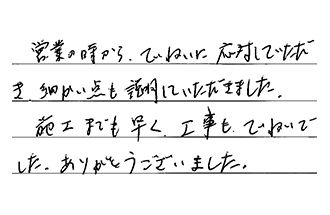 営業の時から、ていねいに応対していただ
き、細かい点も説明していただきました。
施工までも早く、工事も、ていねいで
した。ありがとうございました。